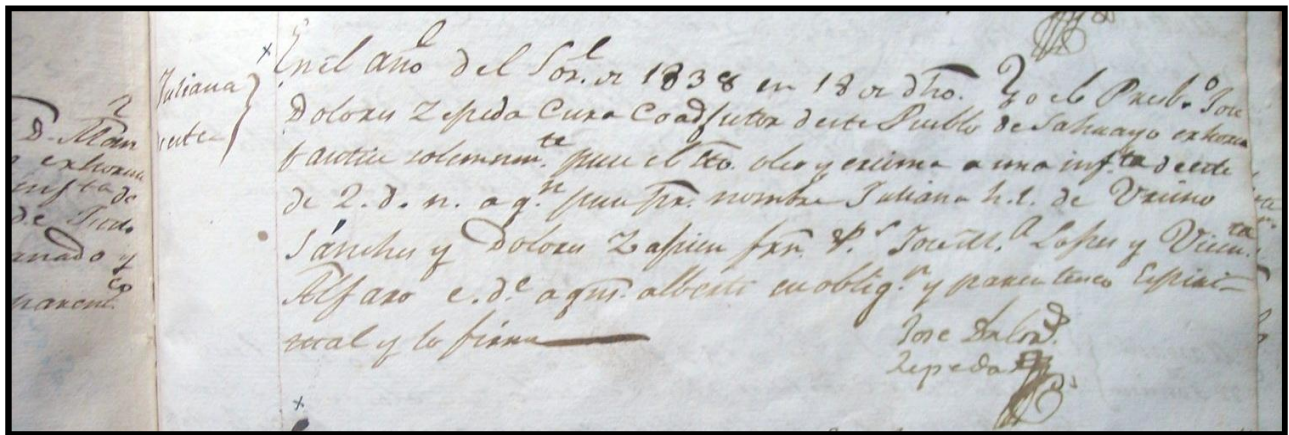 Juliana
deste
En el año del Sor. de 1838 en 18 de dho. Yo el Presb.o José
Dolores Zepeda Cura Coadjutor deste Pueblo de Sahuayo exhorte
bautise solemnem.te puse el Sto. oleo y crisma a una inf.ta deste
de 2. d. n. a q.n puse pr. nombre Juliana h. l. de
Sánches y Dolores frn. P.s José M.a Lopes y Vicen.ta
Alfaro e. d.e a qns. alberti su oblig.n y parentesco Espiri-
tual y lo firme
José Dolores
Zepeda
D. Man
exhorte
inf.ta de
de
anado y
parent.co